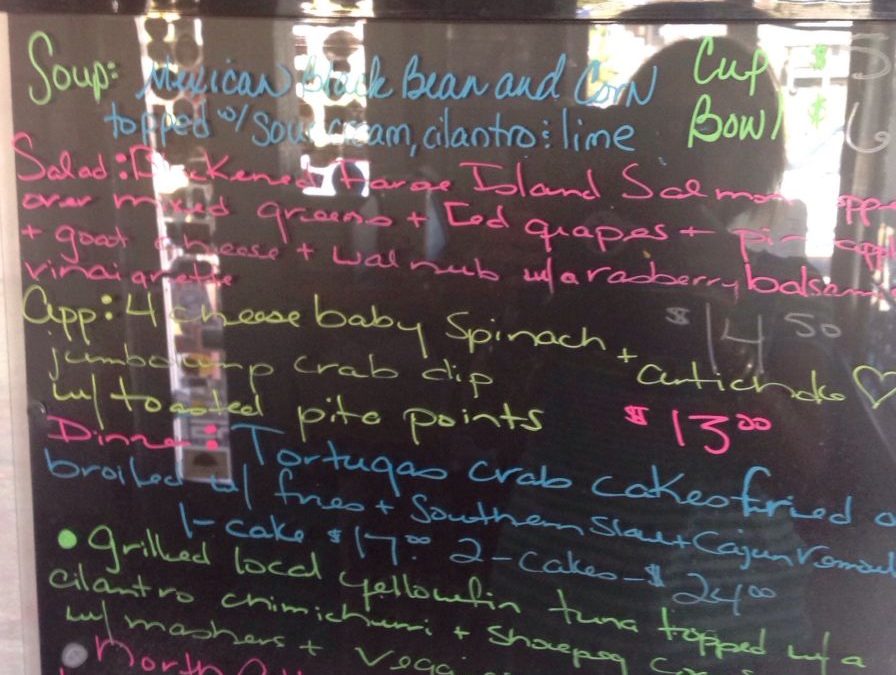 Soup: Mexican Black Bean and Corn Cup $
topped w/ sour cream, cilantro : lime Bowl $ 6
Salad: Blackened Faroe Island Salmon
over mixed greens + red grapes +
+ goat cheese + walnuts w/ a rasberry
vinaigrette
App: 4 cheese baby Spinach $14.50
+ artichoke ♡
jumbo lump crab dip
w/ toasted pita points $13.00
Dinner: Tortugas crab cakes fried
broiled w/ fries + Southern Slaw + Cajun
1-cake $17.00 2-cakes-$24.00
• grilled local yellowfin tuna topped w/ a
cilantro chimichurri + shoepeg
w/ mashers +
• North